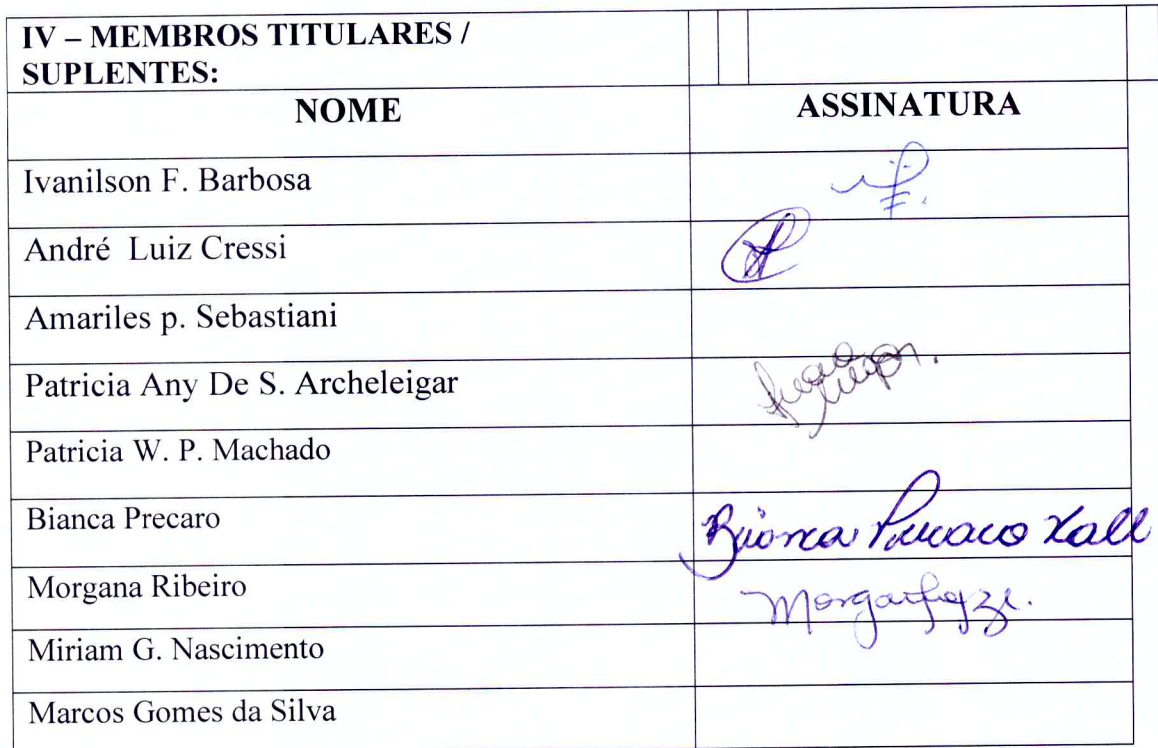 IV – MEMBROS TITULARES /
SUPLENTES:
NOME ASSINATURA
Ivanilson F. Barbosa
André Luiz Cressi
Amariles p. Sebastiani
Patricia Any De S. Archeleigar
Patricia W. P. Machado
Bianca Precaro Bianca Precaro
Morgana Ribeiro
Miriam G. Nascimento
Marcos Gomes da Silva